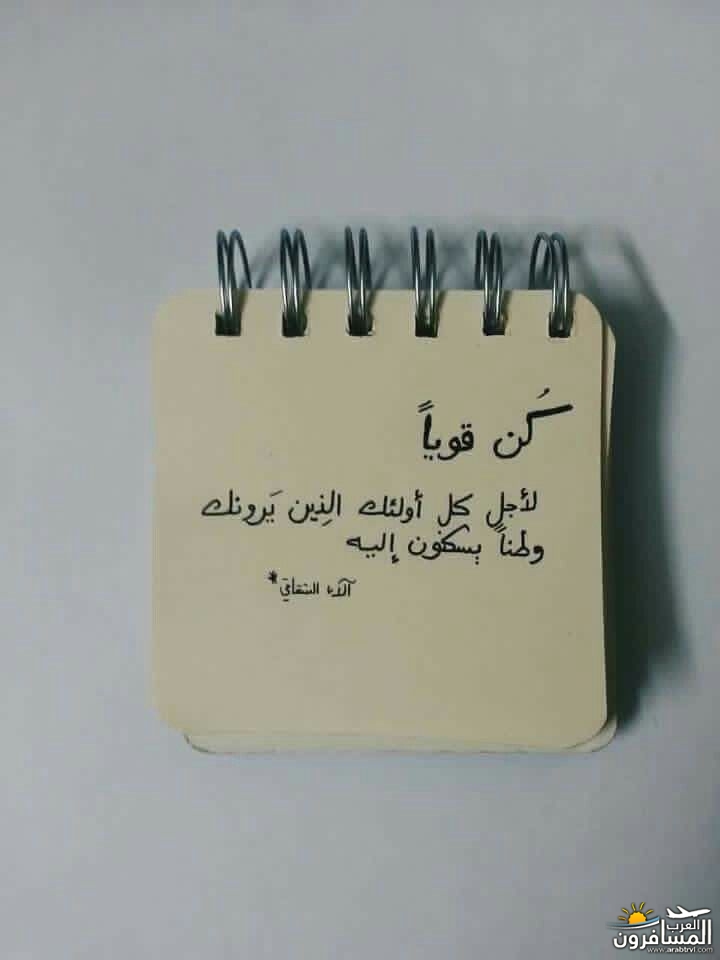 كُن قوياً
لأجل كل أولئك الذِين يَرونك
وطناً يسكنون إليه
آلاء الشقاقي*
العرب
المسافرون
www.arabtrvl.com